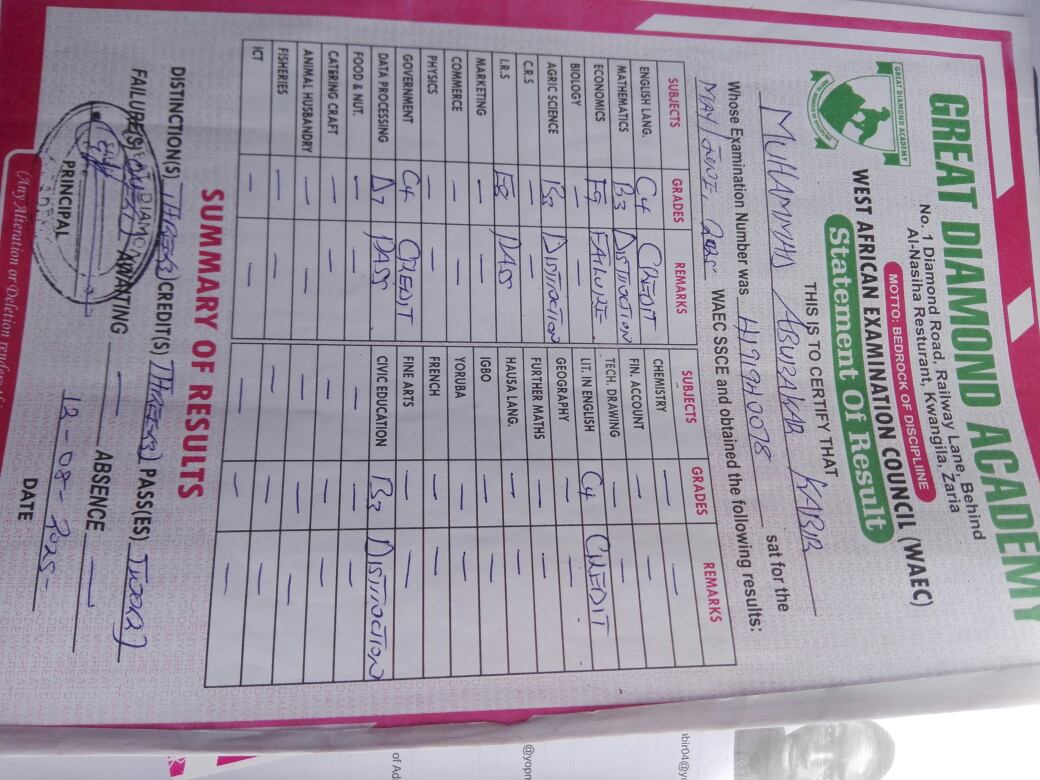 GREAT DIAMOND ACADEMY
No. 1 Diamond Road, Railway Lane, Behind
Al-Nasiha Resturant, Kwangila, Zaria
MOTTO: BEDROCK OF DISCIPLIINE
GREAT DIAMOND ACADEMY
WEST AFRICAN EXAMINATION COUNCIL (WAEC)
Statement Of Result
THIS IS TO CERTIFY THAT
MUHAMMAD ABUBAKAR KABIR sat for the
Whose Examination Number was 41919H0078
MAY/JUNE, 2025 WAEC SSCE and obtained the following results:
SUBJECTS GRADES REMARKS SUBJECTS GRADES REMARKS
ENGLISH LANG. C4 CREDIT CHEMISTRY — —
MATHEMATICS B3 DISTINCTION FIN. ACCOUNT — —
ECONOMICS F9 FAILURE TECH. DRAWING — —
BIOLOGY — — LIT. IN ENGLISH C4 CREDIT
AGRIC SCIENCE B3 DISTINCTION GEOGRAPHY — —
C.R.S — — FURTHER MATHS — —
I.R.S E8 PASS HAUSA LANG. — —
MARKETING — — IGBO — —
COMMERCE — — YORUBA — —
PHYSICS — — FRENCH — —
GOVERNMENT C4 CREDIT FINE ARTS — —
DATA PROCESSING D7 PASS CIVIC EDUCATION B3 DISTINCTION
FOOD & NUT. — — — — —
CATERING CRAFT — — — — —
ANIMAL HUSBANDRY — — — — —
FISHERIES — — — — —
ICT — — — — —
SUMMARY OF RESULTS
DISTINCTION(S) THREE(3) CREDIT(S) THREE(3) PASS(ES) TWO(2)
FAILURE(S) ONE(1) AWAITING — ABSENCE —
12-08-2025-
PRINCIPAL DATE
(Any Alteration or Deletion renders
bir04@y
@yopn
of Ad